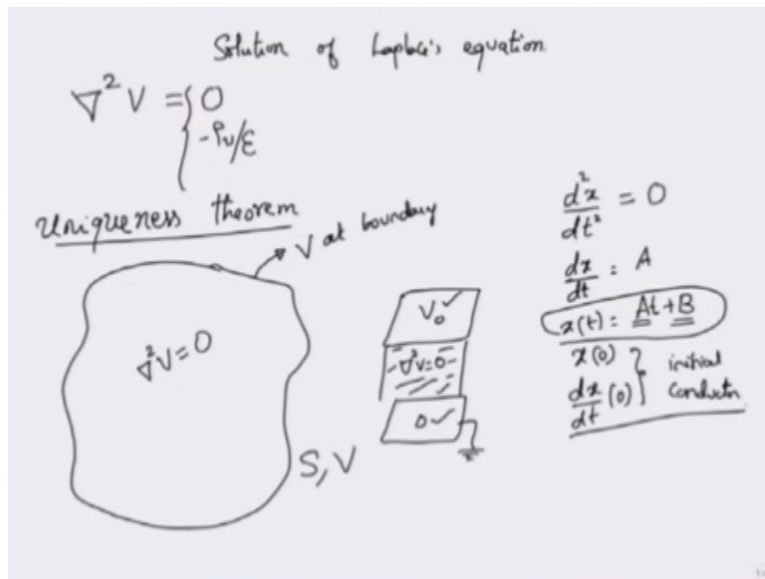 Solution of Laplace's equation
∇²V = { 0
-ρv/ε
Uniqueness theorem
V at boundary
∇²V = 0
S, V
V₀ ✓
∇²V = 0
0 ✓
d²x/dt² = 0
dx/dt = A
x(t) = At + B
x(0)
dx/dt (0)
} initial
conditn